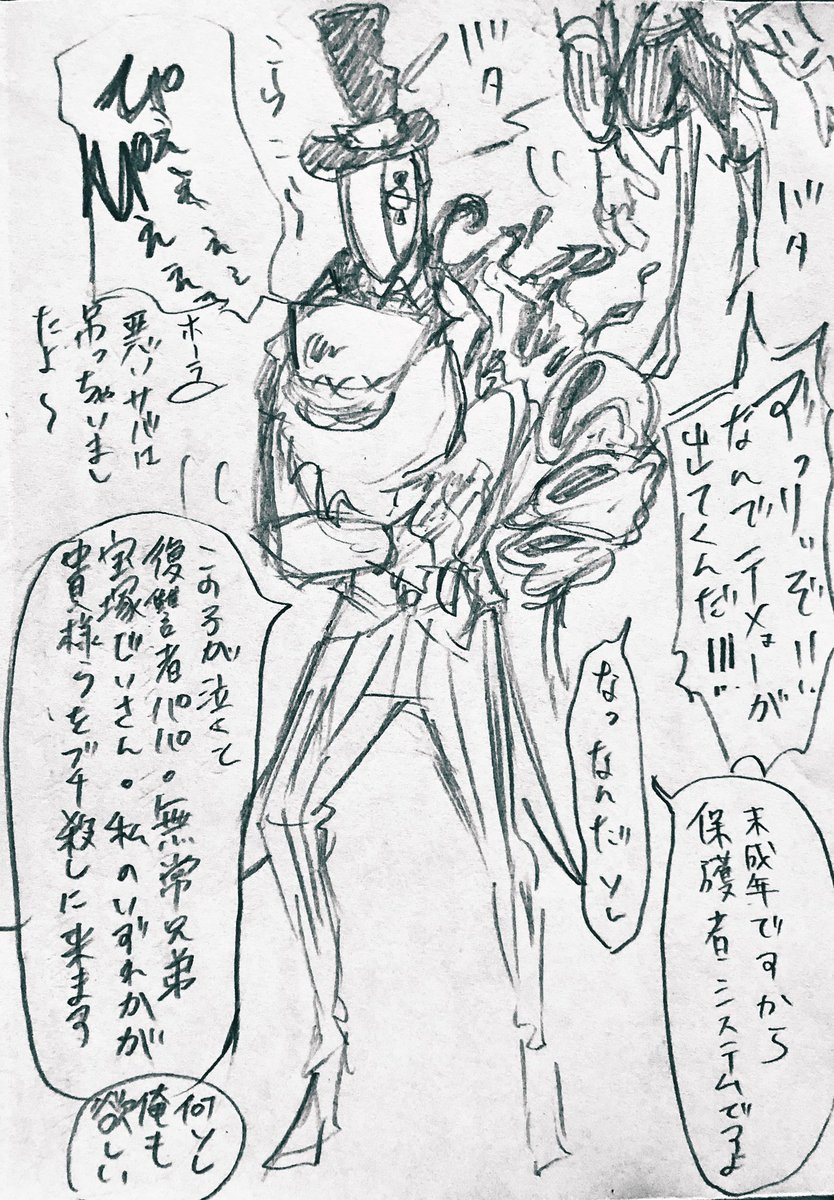 バタ
バタ
ずりぃぞ!!!
なんでテメェーが
出てくんだ!!!
未成年ですから
保護者システムですよ
なっなんだソレ
こらこら
ぴぇ
ぴぇえええええ
ホーラ
悪いサバは
吊っちゃいまし
たよ〜
この子が泣くて
復讐者パパ。無常兄弟
宝塚じいさん。私のいずれかが
貴様らをブチ殺しに来ます
何ソレ
俺も
欲しい